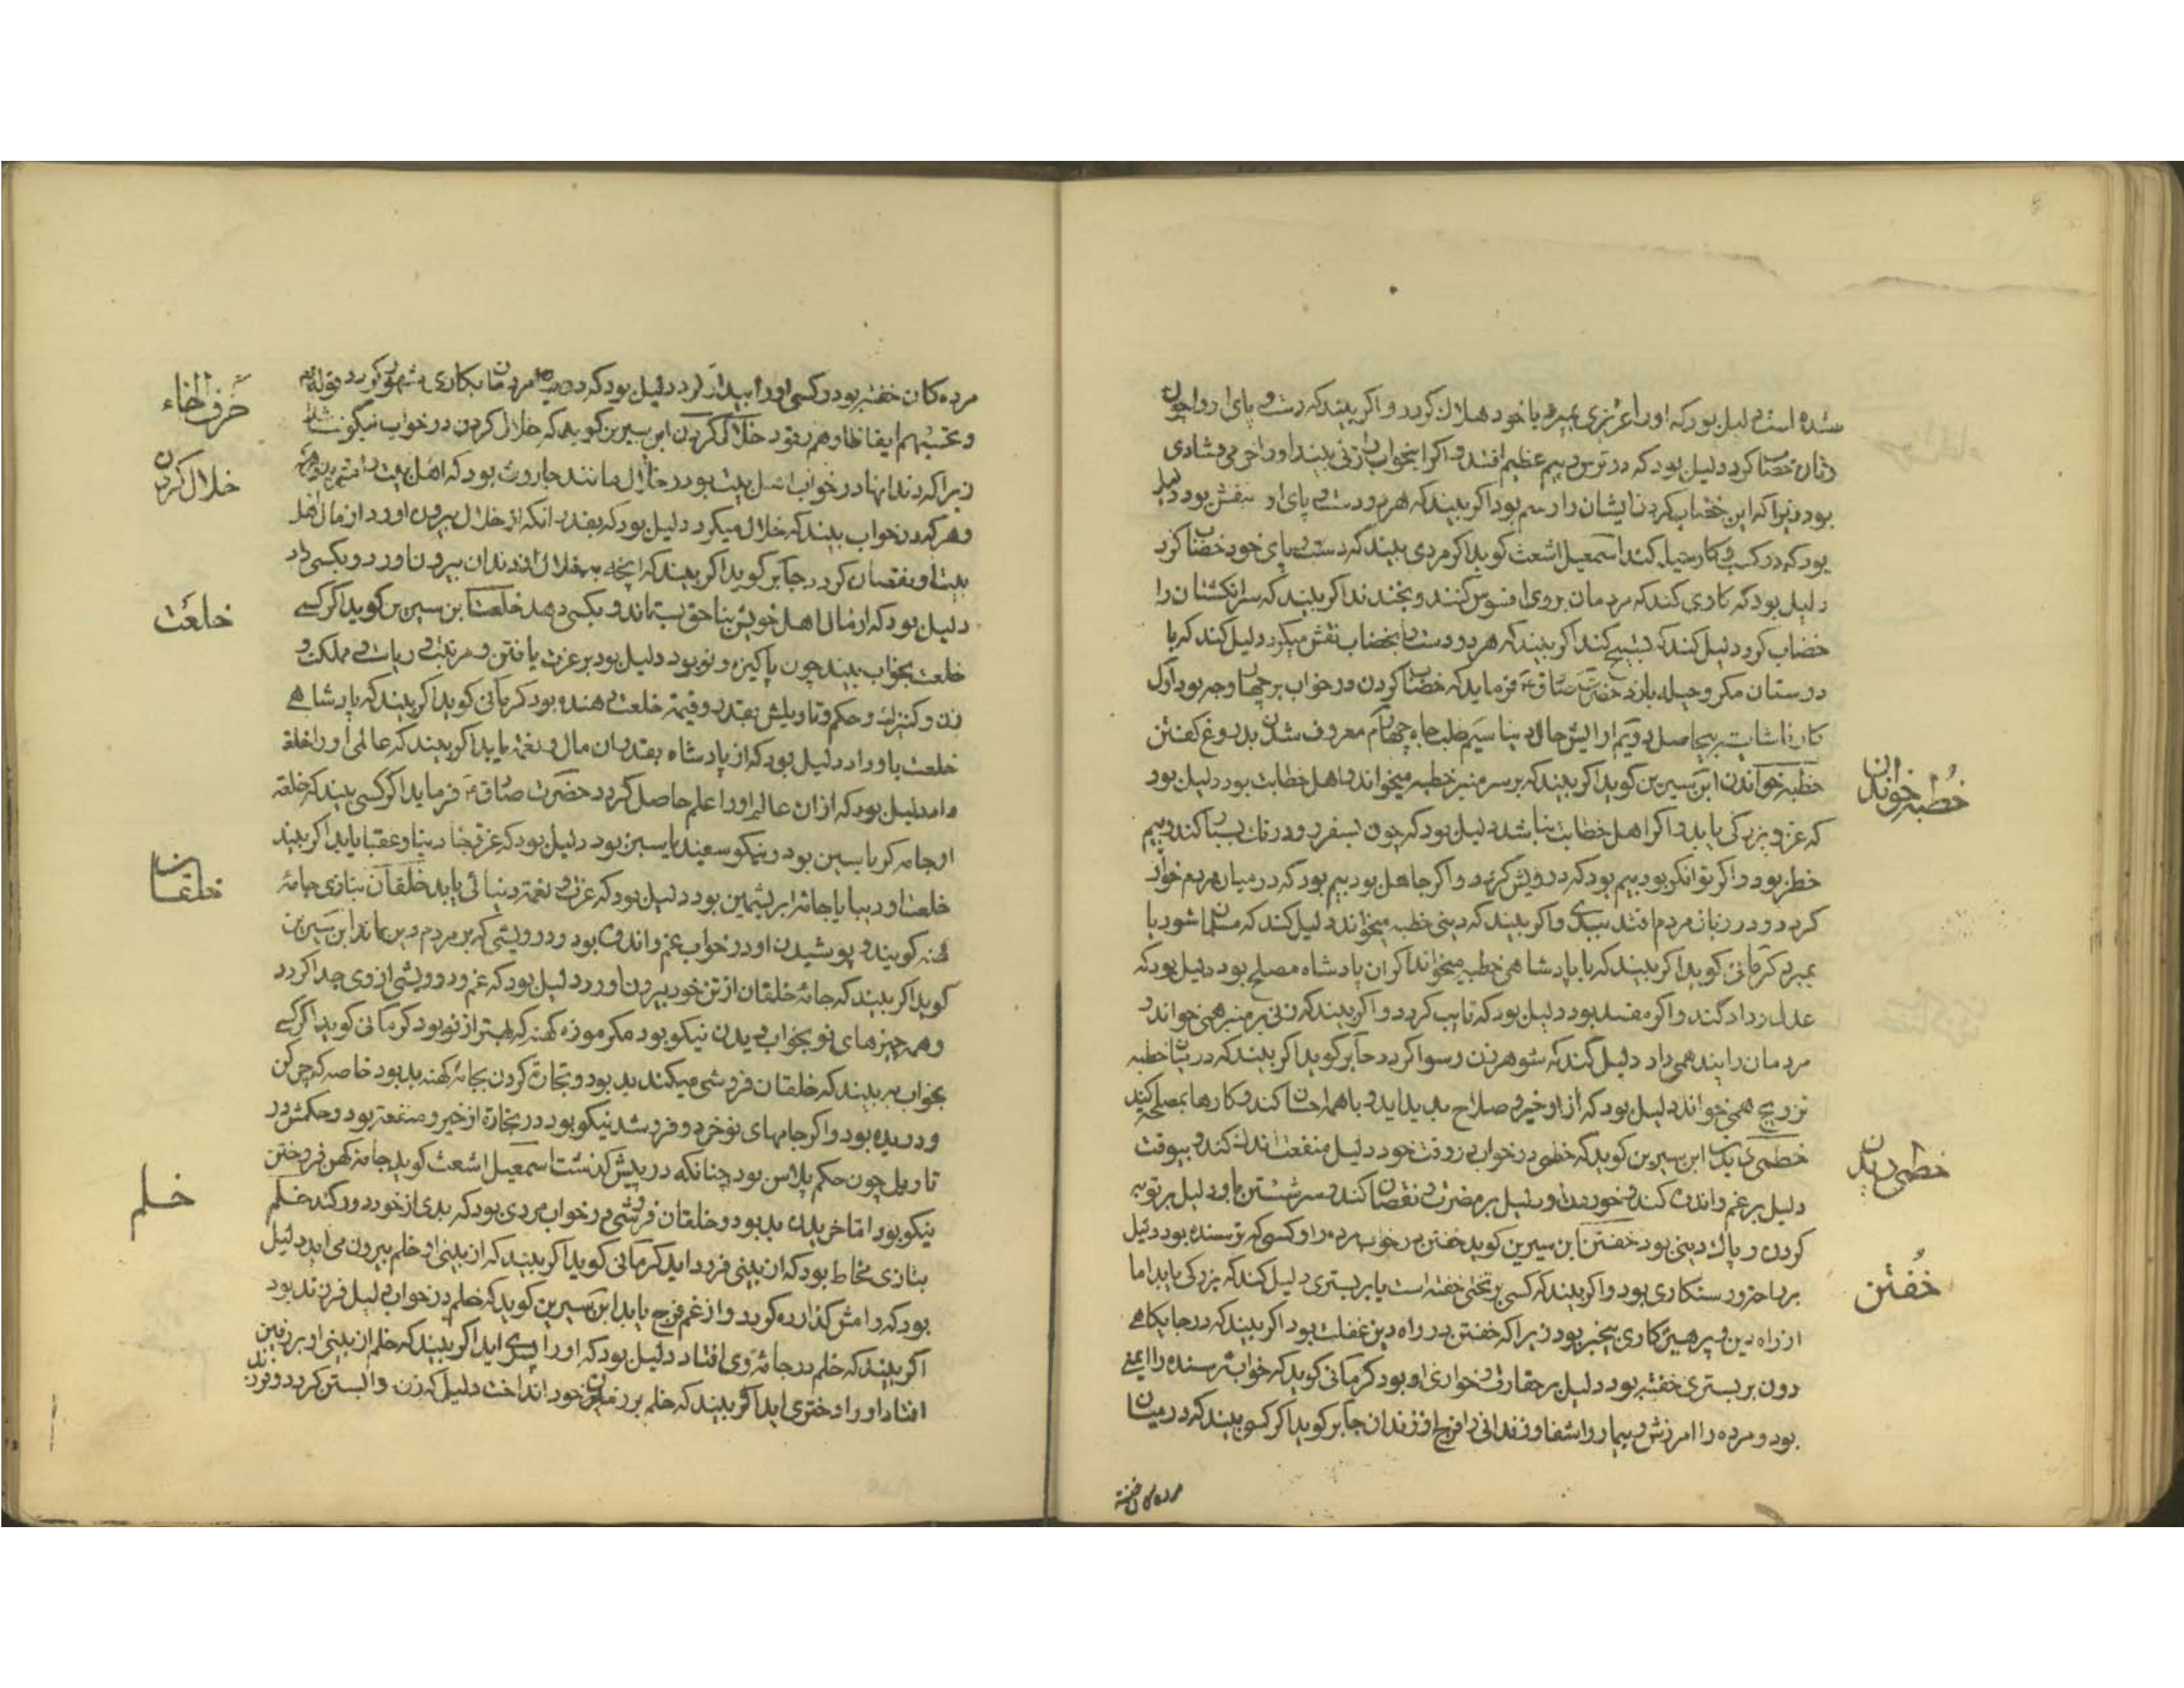 شده است دلیل بود که او را عزیزی بمیرد یا خود هلاک کردد و اکر بیند که دست و پای او را چون
زنان خضاب کرد دلیل بود که در ترس و بیم عظیم افتد و اکر این خواب را زنی بیند او را خرمی و شادی
بود زیرا که این خضاب کردن ایشان را رسم بود اکر بیند که هر دو دست و پای او منقش بود دلیل
بود که در کسب و کار حیله کند اسمعیل اشعث کوید اکر مردی بیند که دست و پای خود خضاب کرد
دلیل بود که کاری کند که مردمان بر وی افسوس کنند و بخندند اکر بیند که سر انکشتان را
خضاب کرد دلیل کند که تسبیح کند اکر بیند که هر دو دست را بخضاب نقش میکرد دلیل کند که با
دوستان مکر و حیله بازد حضرت صادق ع فرماید که خضاب کردن در خواب بر چهار وجه بود اول
کار ناشایسته بیحاصل دویم ارایش حال دنیا سیم طلب جاه چهارم معروف شدن بدروغ کفتن
خطبه خواندن ابن سیرین کوید اکر بیند که بر سر منبر خطبه میخواند و اهل خطابت بود دلیل بود
که عز و بزرکی یابد و اکر اهل خطابت نباشد دلیل بود که چون بسفر رود درنک بسیار کند و بیم
خطر بود و اکر توانکر بود بیم بود که درویش کردد و اکر جاهل بود بیم بود که در میان مردم خوار
کردد و در زبان مردم افتد ببدی و اکر بیند که دینی خطبه میخواند دلیل کند که مسلمان شود یا
بمیرد کرمانی کوید اکر بیند که با پادشاهی خطبه میخواند اکر ان پادشاه مصلح بود دلیل بود که
عدل و داد کند و اکر مفسد بود دلیل بود که تایب کردد و اکر بیند که زنی بر منبر همی خواند و
مردمان را پند همی داد دلیل کند که شوهر زن رسوا کردد جابر کوید اکر بیند که در خطبه
تزویج همی خواند دلیل بود که از او خیر و صلاح پدید اید و با همه احسان کند و کارها بمصلحت کند
خطمی دیدن ابن سیرین کوید که خطمی در خواب در وقت خود دلیل منفعت اندک کند و بیوقت
دلیل بر غم و اندوه کند و خوردن او دلیل بر مضرت و نقصان کند و سر شستن باو دلیل بر توبه
کردن و پاک دینی بود خفتن ابن سیرین کوید خفتن در خواب مرده را و کسی که ترسنده بود دلیل
بر راحت و رستکاری بود و اکر بیند که کسی بر تختی خفته است یا بر بستری دلیل کند که بزرکی یابد اما
از راه دین و پرهیزکاری بیخبر بود زیرا که خفتن در راه دین غفلت بود اکر بیند که در جایکاهی
دون بر بستری خفته بود دلیل بر حقارت و خواری او بود کرمانی کوید که خواب ترسنده را ایمنی
بود و مرده را امرزش و بیمار را شفا و زندانی را فرج از زندان جابر کوید اکر کسی بیند که در میان
خطبه خواندن
خطمی دیدن
خفتن
مرده کان خفته
مرده کان خفته بود و کسی او را بیدار کرد دلیل بود که در مردمان بکاری مشهور کردد قوله تع
و تحسبهم ایقاظا وهم رقود خلال کردن ابن سیرین کوید که خلال کردن در خواب نیکو نباشد
زیرا که دندانها در خواب اهل بیت بود و خلال مانند جاروب بود که اهل بیت را
و هر که در خواب بیند که خلال میکرد دلیل بود که بقدر انکه از خلال بیرون اورد از مال اهل
بیت او نقصان کردد جابر کوید اکر بیند که انچه بخلال از دندان بیرون اورد و بکسی داد
دلیل بود که از مال اهل خویش بناحق بستاند و بکسی دهد خلعت ابن سیرین کوید اکر کسی
خلعت بخواب بیند چون پاکیزه و نو بود دلیل بود بر عزت یافتن و مرتبت و ریاست و مملکت و
زن و کنیزک و حکم و تاویلش بقدر و قیمة خلعت دهنده بود کرمانی کوید اکر بیند که پادشاهی
خلعت باو داد دلیل بود که از پادشاه بقدر ان مال و نعمة یابد اکر بیند که عالمی او را خلعة
داد دلیل بود که از ان عالم او را علم حاصل کردد حضرت صادق ع فرماید اکر کسی بیند که خلعة
او جامه کرباسین بود و نیکو سفید یا سبز بود دلیل بود که عزت و جاه دنیا و عقبا یابد اکر بیند
خلعت او دیبا یا جامه ابریشمین بود دلیل بود که عزت و نعمة دنیائی یابد خلقان بتازی جامه
کهنه کویند و پوشیدن او در خواب غم و اندوه بود و درویشی که بر مردم دین ماند ابن سیرین
کوید اکر بیند که جامه خلقان از تن خود بیرون اورد دلیل بود که غم و درویشی از وی جدا کردد
و همه چیزهای نو بخواب دیدن نیکو بود مکر موزه کهنه که بهتر از نو بود کرمانی کوید اکر کسی
بخواب بیند که خلقان فروشی میکند بد بود و تجارة کردن بجامه کهنه بد بود خاصه که چرکن
و دریده بود و اکر جامهای نو خرد و فروشد نیکو بود در تجارة از خیر و منفعة بود و حکمش در
تاویل چون حکم پلاس بود چنانکه در پیش کذشت اسمعیل اشعث کوید جامه کهن فروختن
نیکو بود اما خریدن بد بود و خلقان فروشی در خواب مردی بود که بدی از خود دور کند خلم
بتازی مخاط بود که از بینی فرود اید کرمانی کوید اکر بیند که از بینی او خلم بیرون می اید دلیل
بود که وامش کذارده کردد و از غم فرج یابد ابن سیرین کوید که خلم در خواب دلیل فرزند بود
اکر بیند که خلم در جامه وی افتاد دلیل بود که او را پسری اید اکر بیند که خلم از بینی او بر زمین
افتاد او را دختری اید اکر بیند که خلم بر زن خود انداخت دلیل که زن وی ابستن کردد و فرزند
حرف الخاء
خلال کردن
خلعت
خلقان
خلم